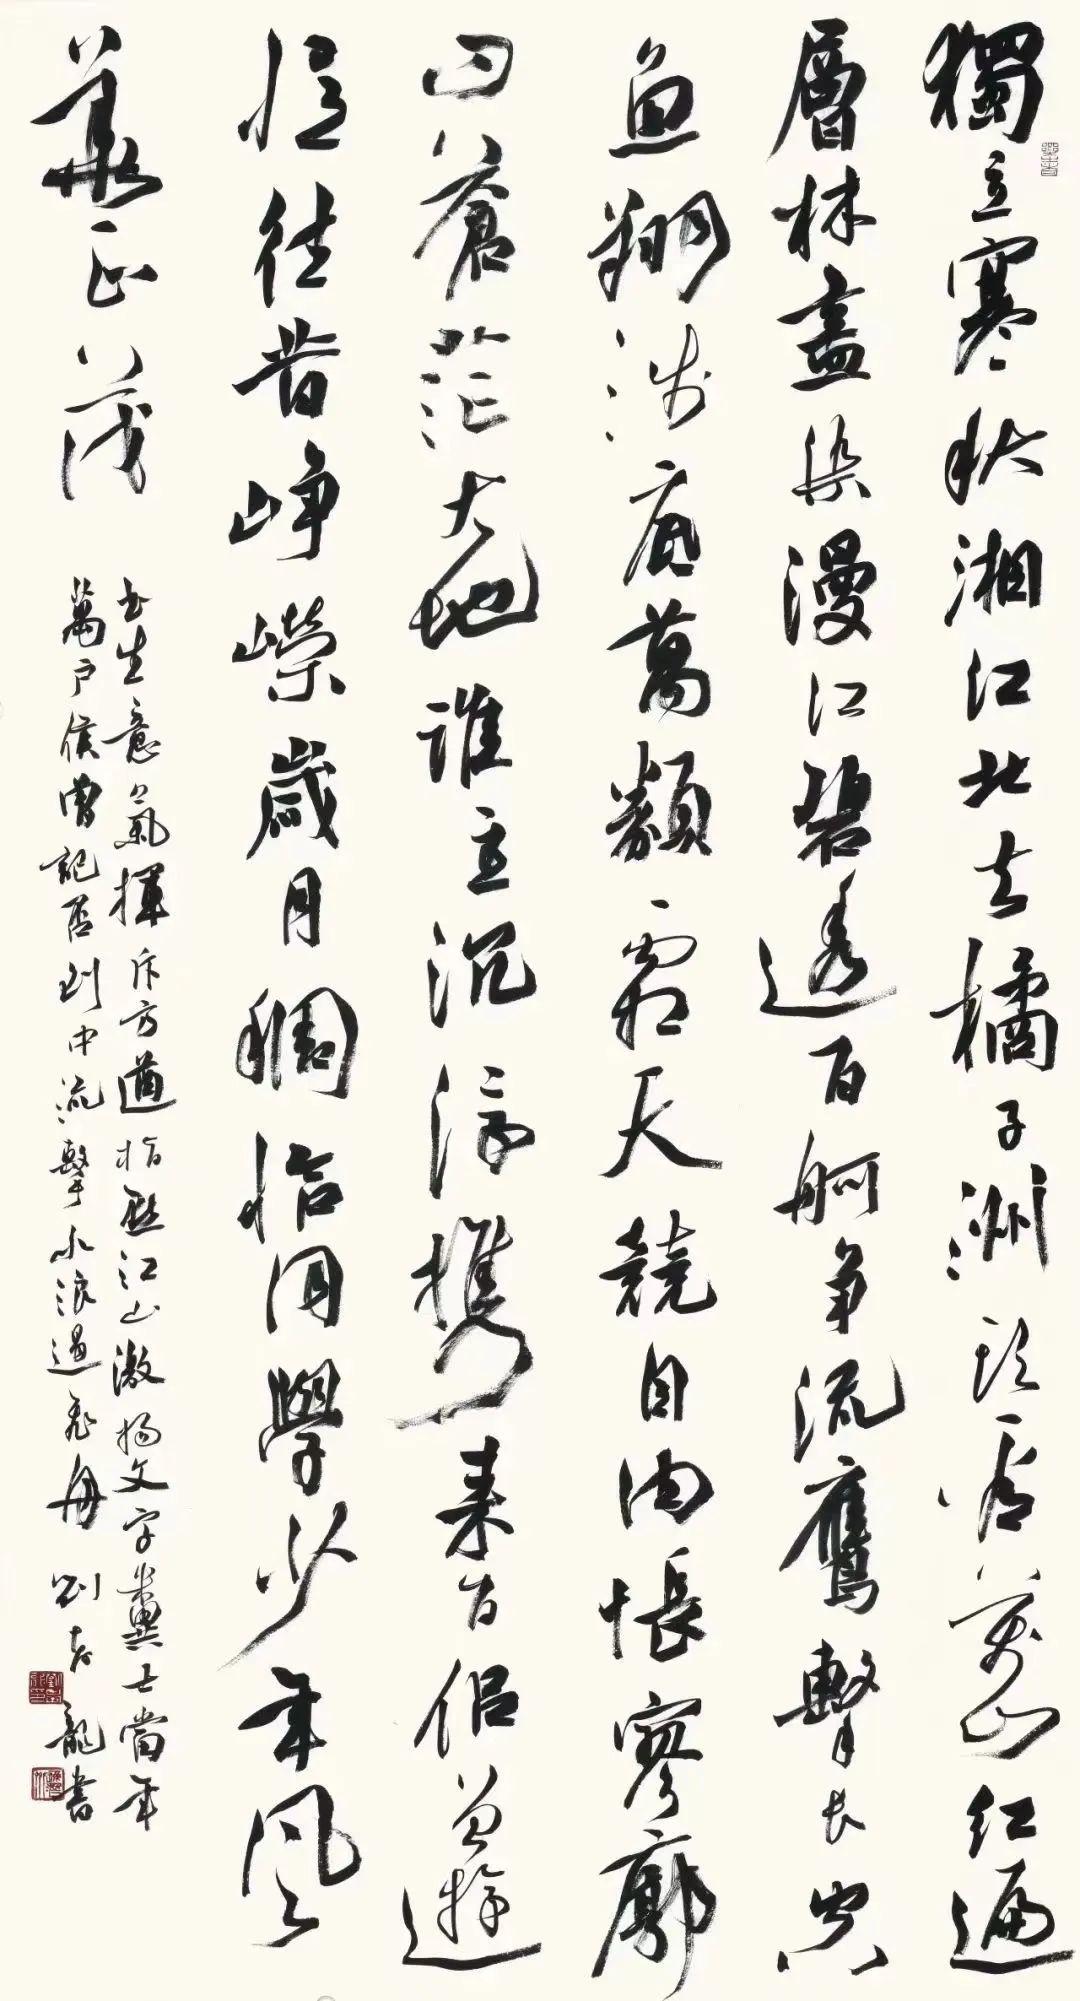 獨立寒秋湘江北去橘子洲頭看萬山紅遍
層林盡染漫江碧透百舸爭流鷹擊長空
魚翔淺底萬類霜天競自由悵寥廓
問蒼茫大地誰主沉浮攜來百侶曾遊
憶往昔崢嶸歲月稠恰同學少年風
華正茂
書生意氣揮斥方遒指點江山激揚文字糞土當年
萬戶侯曾記否到中流擊水浪遏飛舟 劉 龍書